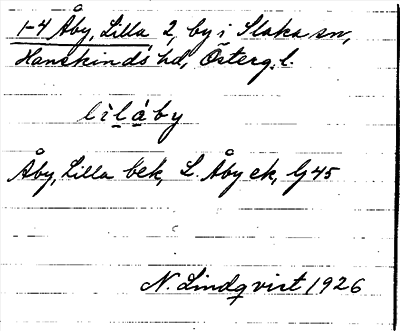 1-4 Åby, Lilla 2, by i Slaka sn,
Hanekinds hd, Österg. l.
lìlȧby
Åby, Lilla bek, L. Åby ek, Gj 45
N. Lindqvist 1926